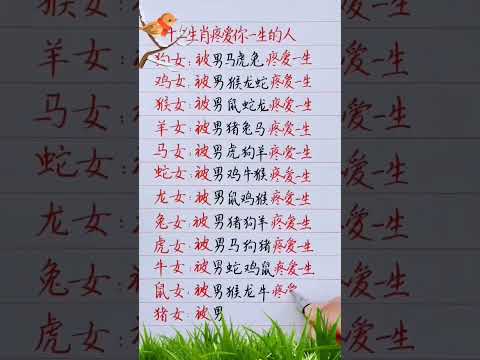 十二生肖疼爱你一生的人
狗女:被男马虎兔疼爱一生
鸡女:被男猴龙蛇疼爱一生
猴女:被男鼠蛇龙疼爱一生
羊女:被男猪兔马疼爱一生
马女:被男虎狗羊疼爱一生
蛇女:被男鸡牛猴疼爱一生
龙女:被男鼠鸡猴疼爱一生
兔女:被男猪狗羊疼爱一生
虎女:被男马狗猪疼爱一生
牛女:被男蛇鸡鼠疼爱一生
鼠女:被男猴龙牛疼爱
猪女:被男